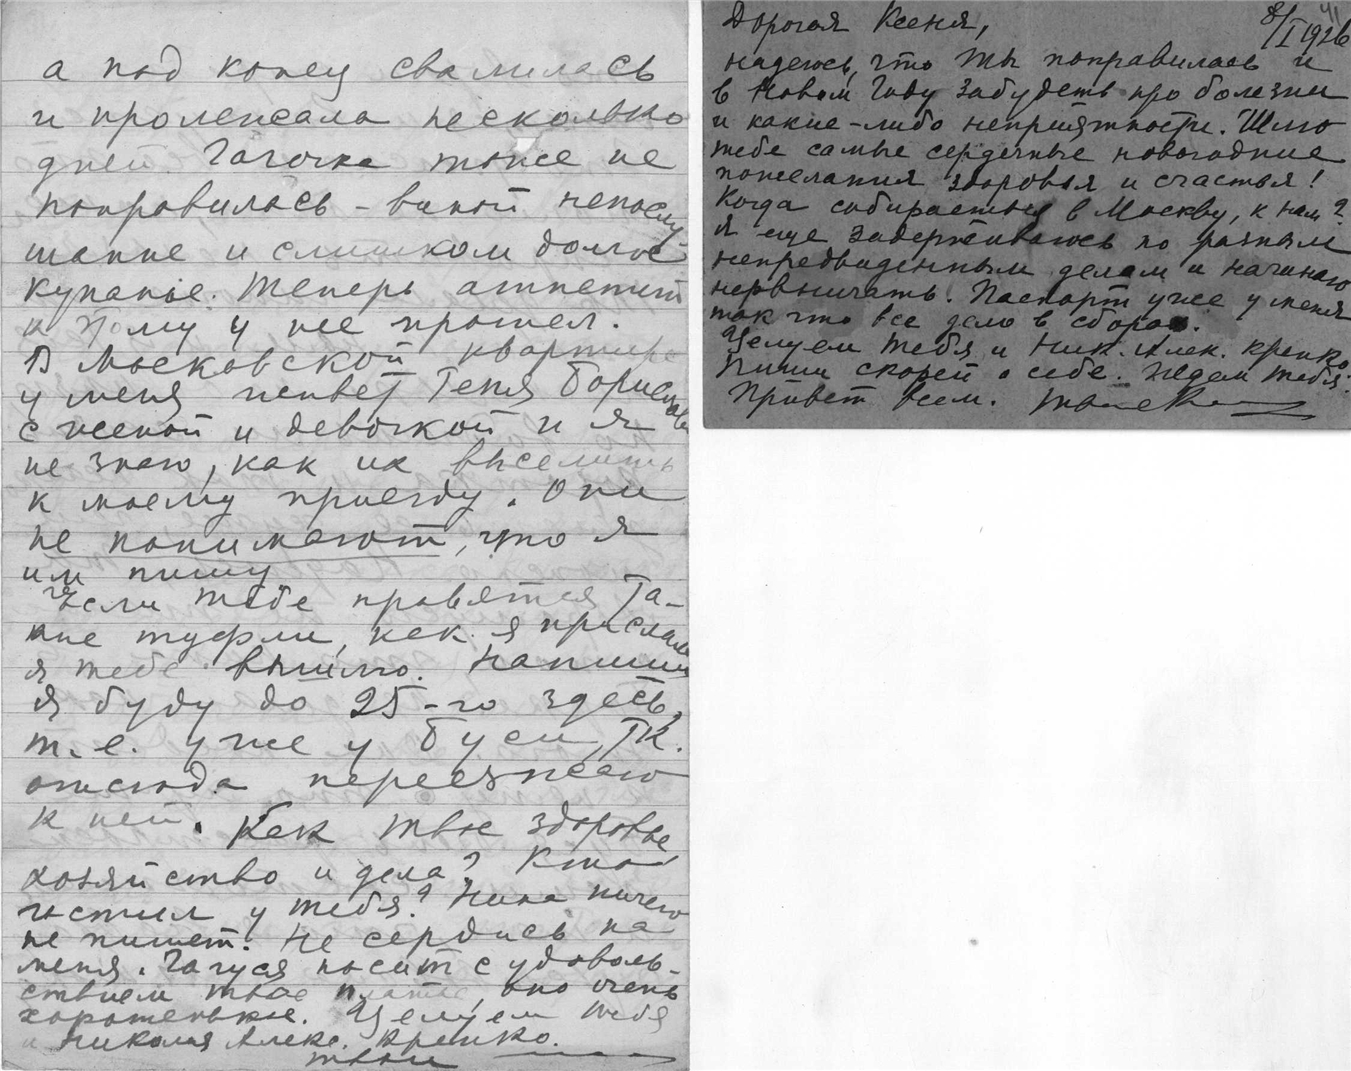 а под конец свалилась
и пролежала несколько
дней. Гагочка тоже не
поправилась – виной непослу-
шание и слишком долгое
купанье. Теперь аппетит
и тому у нее прошел.
В Московской квартире
у меня живет Геня Борисов
с женой и девочкой и я
не знаю, как их выселить
к моему приезду. Они
не понимают, что я
им пишу
Если тебе нравятся та-
кие туфли, как я прислала
я тебе вышлю. Напиши
Я буду до 25-го здесь,
т.е. уже у Буси, т.к.
отсюда переезжаю
к ней. Как твое здоровье
хозяйство и дела? Кто
гостил у тебя? Нина ничего
не пишет. Не сердись на
меня. Гагуся носит с удоволь-
ствием твое платье, оно очень
хорошенькое. Целуем тебя
и Николая Алекс. крепко.
твои
41
Дорогая Ксеня,
8/I 1926
надеюсь, что ты поправилась и
в Новом Году забудешь про болезни
и какие-либо неприятности. Шлю
тебе самые сердечные новогодние
пожелания здоровья и счастья!
Когда собираешься в Москву, к нам?
Я еще задерживаюсь по разным
непредвиденным делам и начинаю
нервничать. Паспорт уже у меня
так что все дело в сборах.
Целуем тебя и Ник. Алек. крепко.
Пиши скорей о себе. Ждем тебя.
Привет всем.